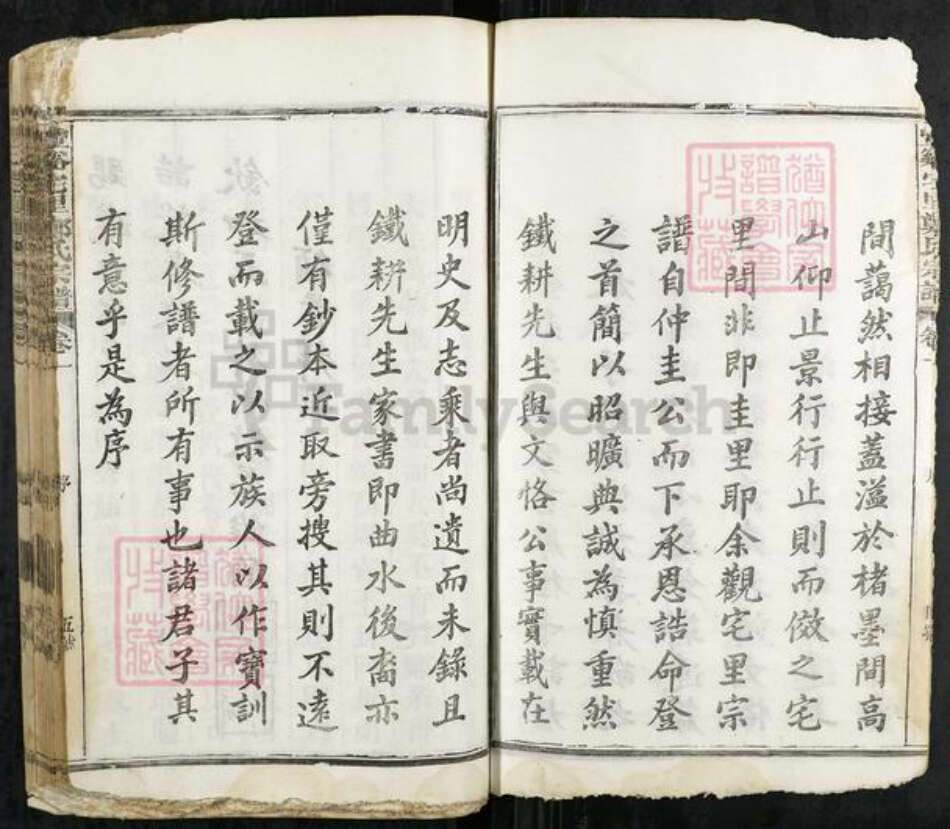 間藹然相接蓋溢於楮墨間高
山仰止景行行止則而倣之宅
里間非即圭里耶余觀宅里宗
譜自仲圭公而下承恩誥命登
之首簡以昭曠典誠為慎重然
鐵耕先生與文恪公事實載在
明史及志乘者尚遺而未錄且
鐵耕先生家書即曲水後裔亦
僅有鈔本近取旁搜其則不遠
登而載之以示族人以作寶訓
斯修譜者所有事也諸君子其
有意乎是為序
宅里鄭氏宗譜 卷一
序
FamilySearch